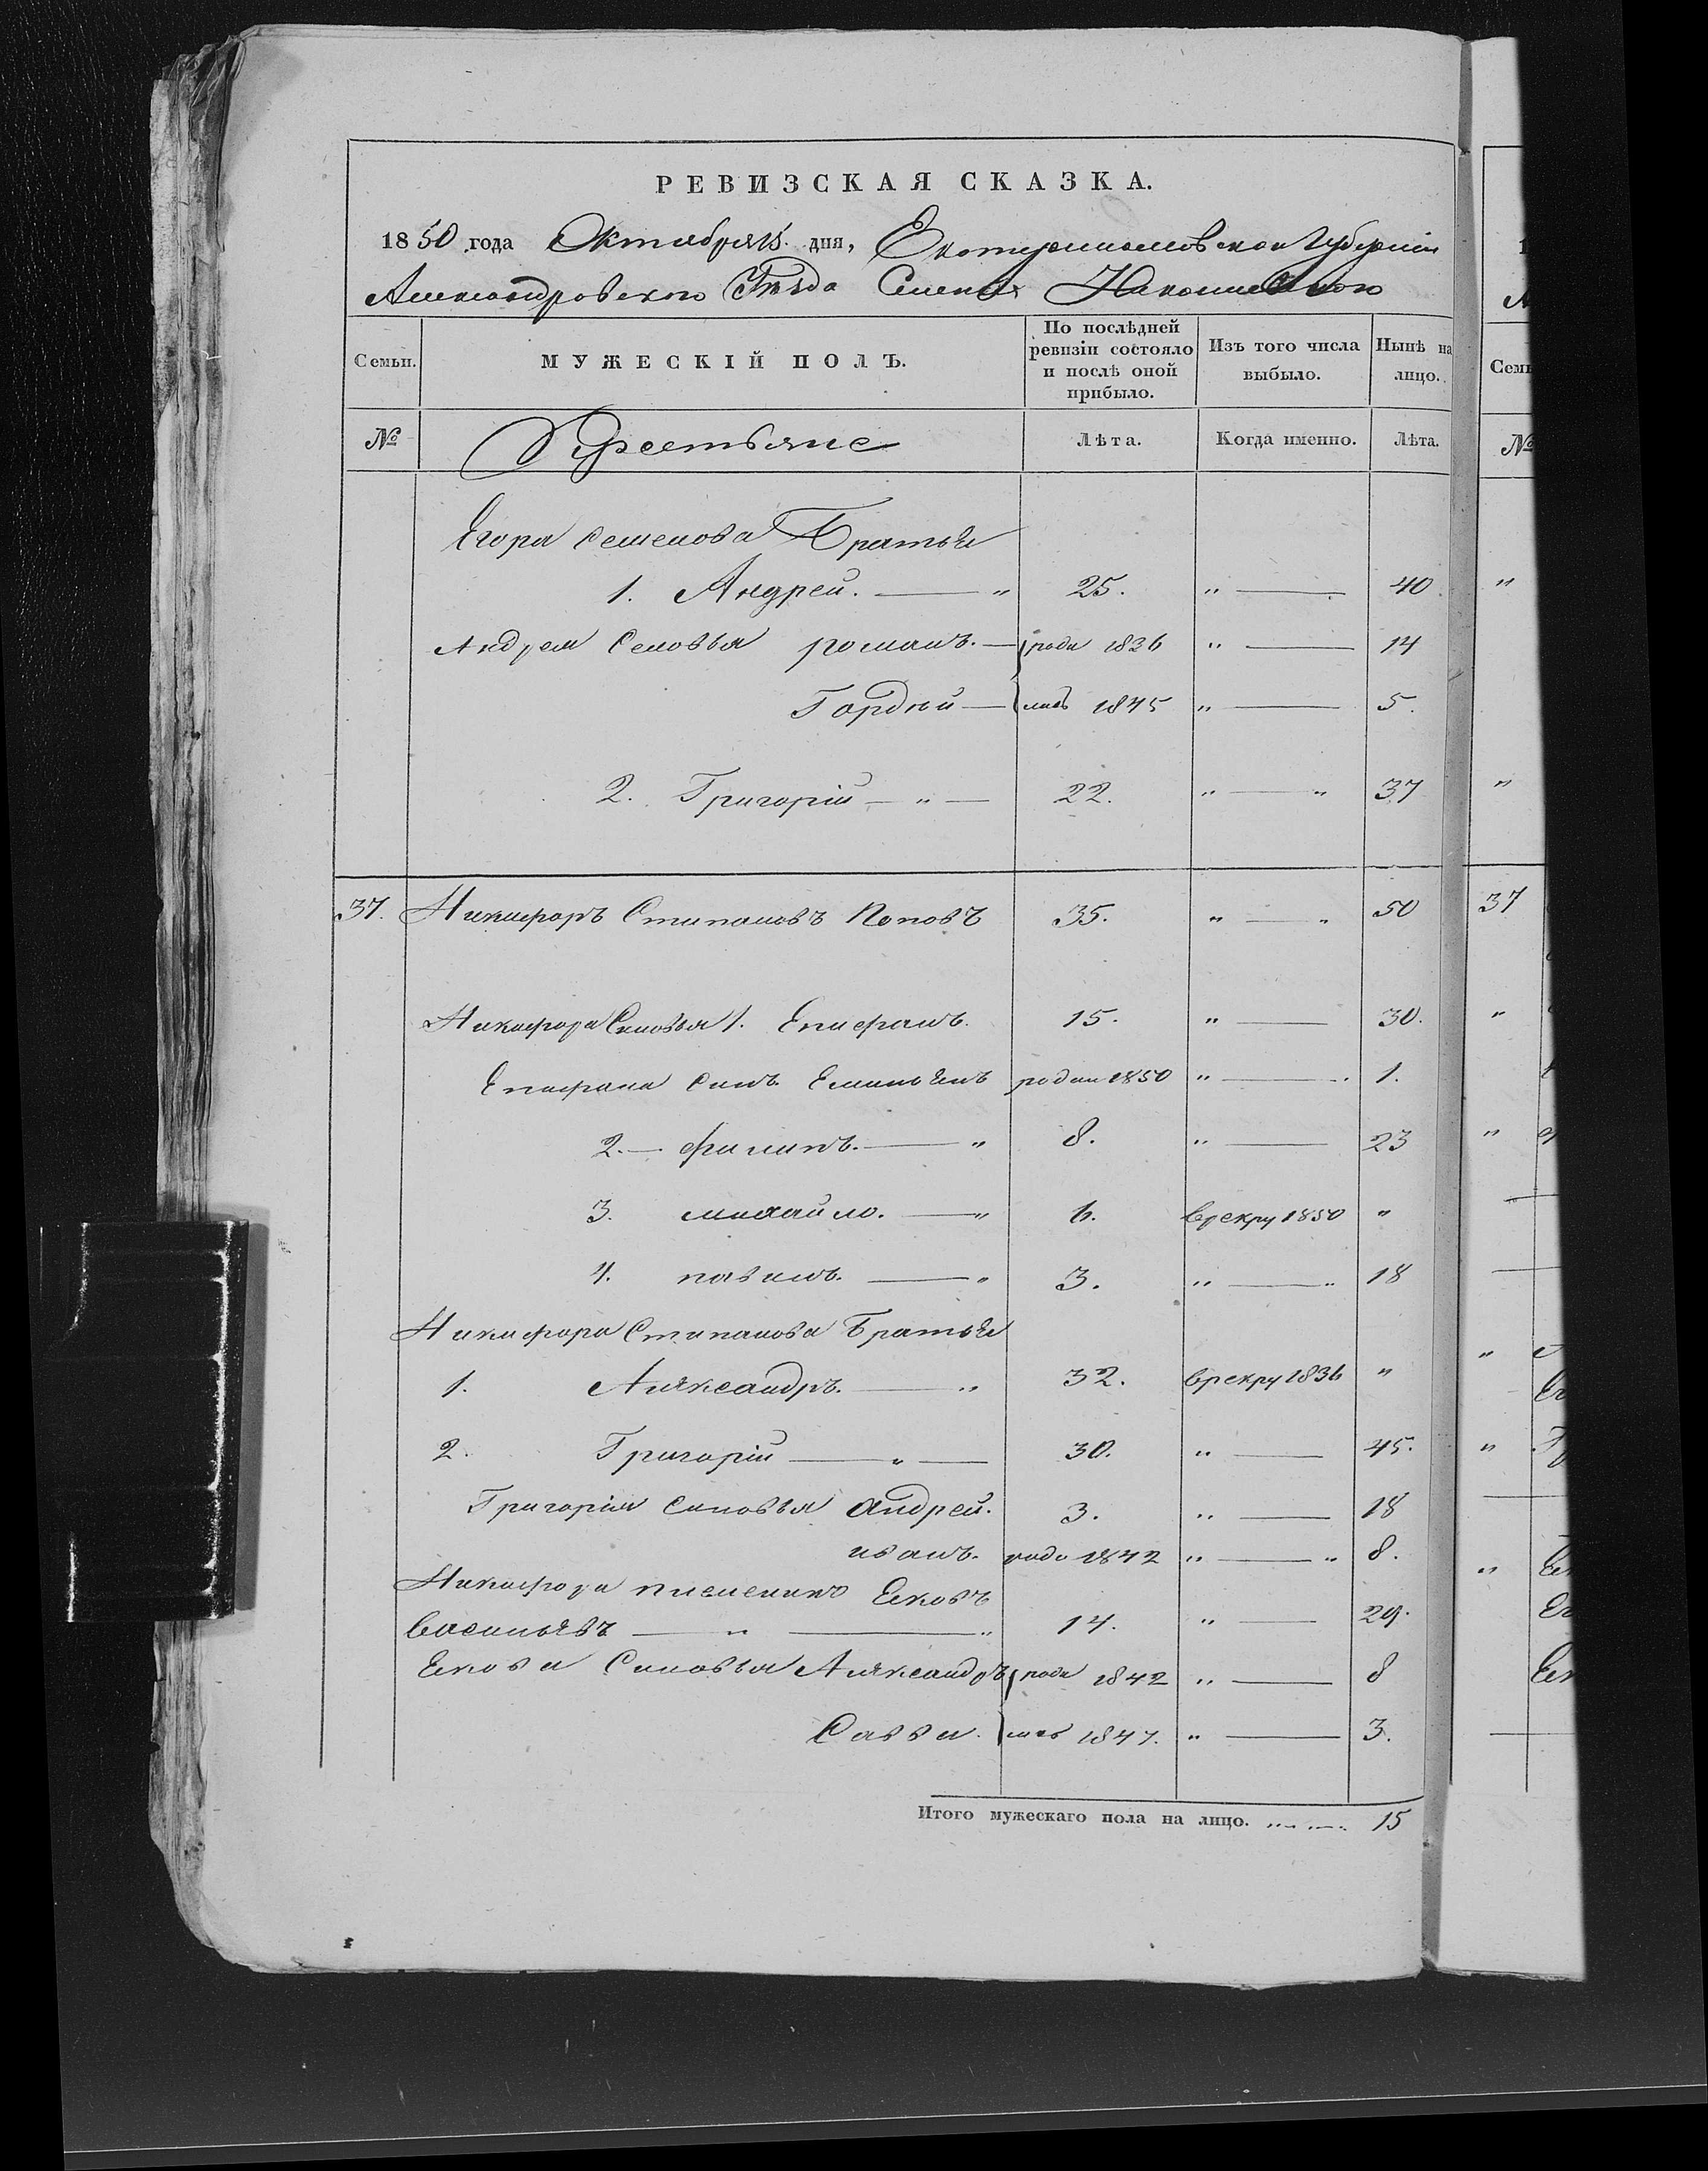 РЕВИЗСКАЯ СКАЗКА.
1850 года Октября 15. дня, Екатеринославской Губернии
Александровского Уезда Села
Семьи. МУЖЕСКІЙ ПОЛЪ. По послѣдней ревизіи состояло и послѣ оной прибыло. Изъ того числа выбыло. Нынѣ на лицо. Семь
№ Крестьяне Лѣта. Когда именно. Лѣта. №
Егора Семенова Братья
1. Андрей. — " 25. " — 40. "
Андрея Сыновья романъ. — роди 1836 " — 14
Гордѣй — лись 1845 " — 5.
2. Григорій — " — 22. " — " 37 "
37. Никифоръ Стипановъ Поповъ 35. " — " 50 37
Никифора Сыновья 1. Епифанъ. 15. " — 30. "
Епифана Сынъ Емильянъ родил 1850 " — 1.
2. — филипъ. — " 8. " — 23 "
3. михайло. — " 6. врекру 1850 "
4. павилъ. — " 3. " — " 18
Никифора Стипанова Братья
1. Аляксандръ. — " 32. врекру 1836 " "
2. Григорій — " — 30. " — 45. "
Григорія Сыновья Андрей. 3. " — 18
иванъ. роди 1842 " — " 8. "
Никифора племеникъ Ековъ
Васильявъ — " — " 14. " — 29.
Екова Сыновья Аляксандръ роди 1842 " — 8
Савва. лись 1847. " — 3.
Итого мужескаго пола на лицо. 15